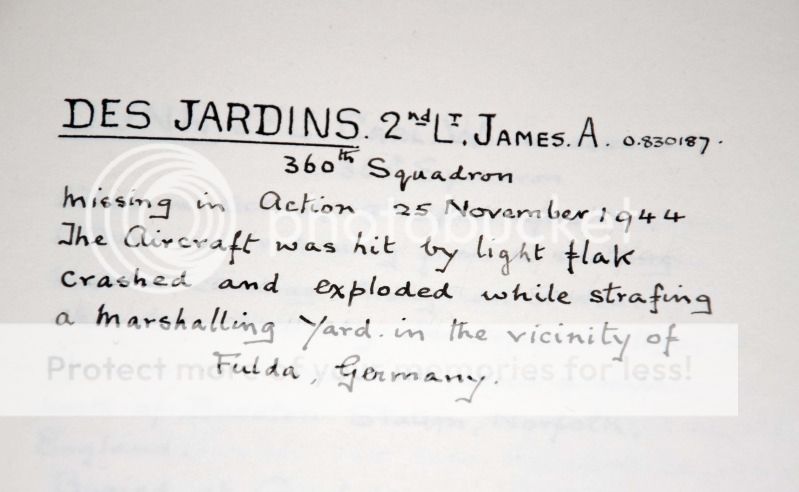 DES JARDINS. 2nd LT. JAMES. A. 0.830187.
360th Squadron
Missing in Action 25 November 1944
The Aircraft was hit by light flak
crashed and exploded while strafing
a Marshalling Yard. in the vicinity of
Fulda, Germany.
photobucket
Protect more of your memories for less!